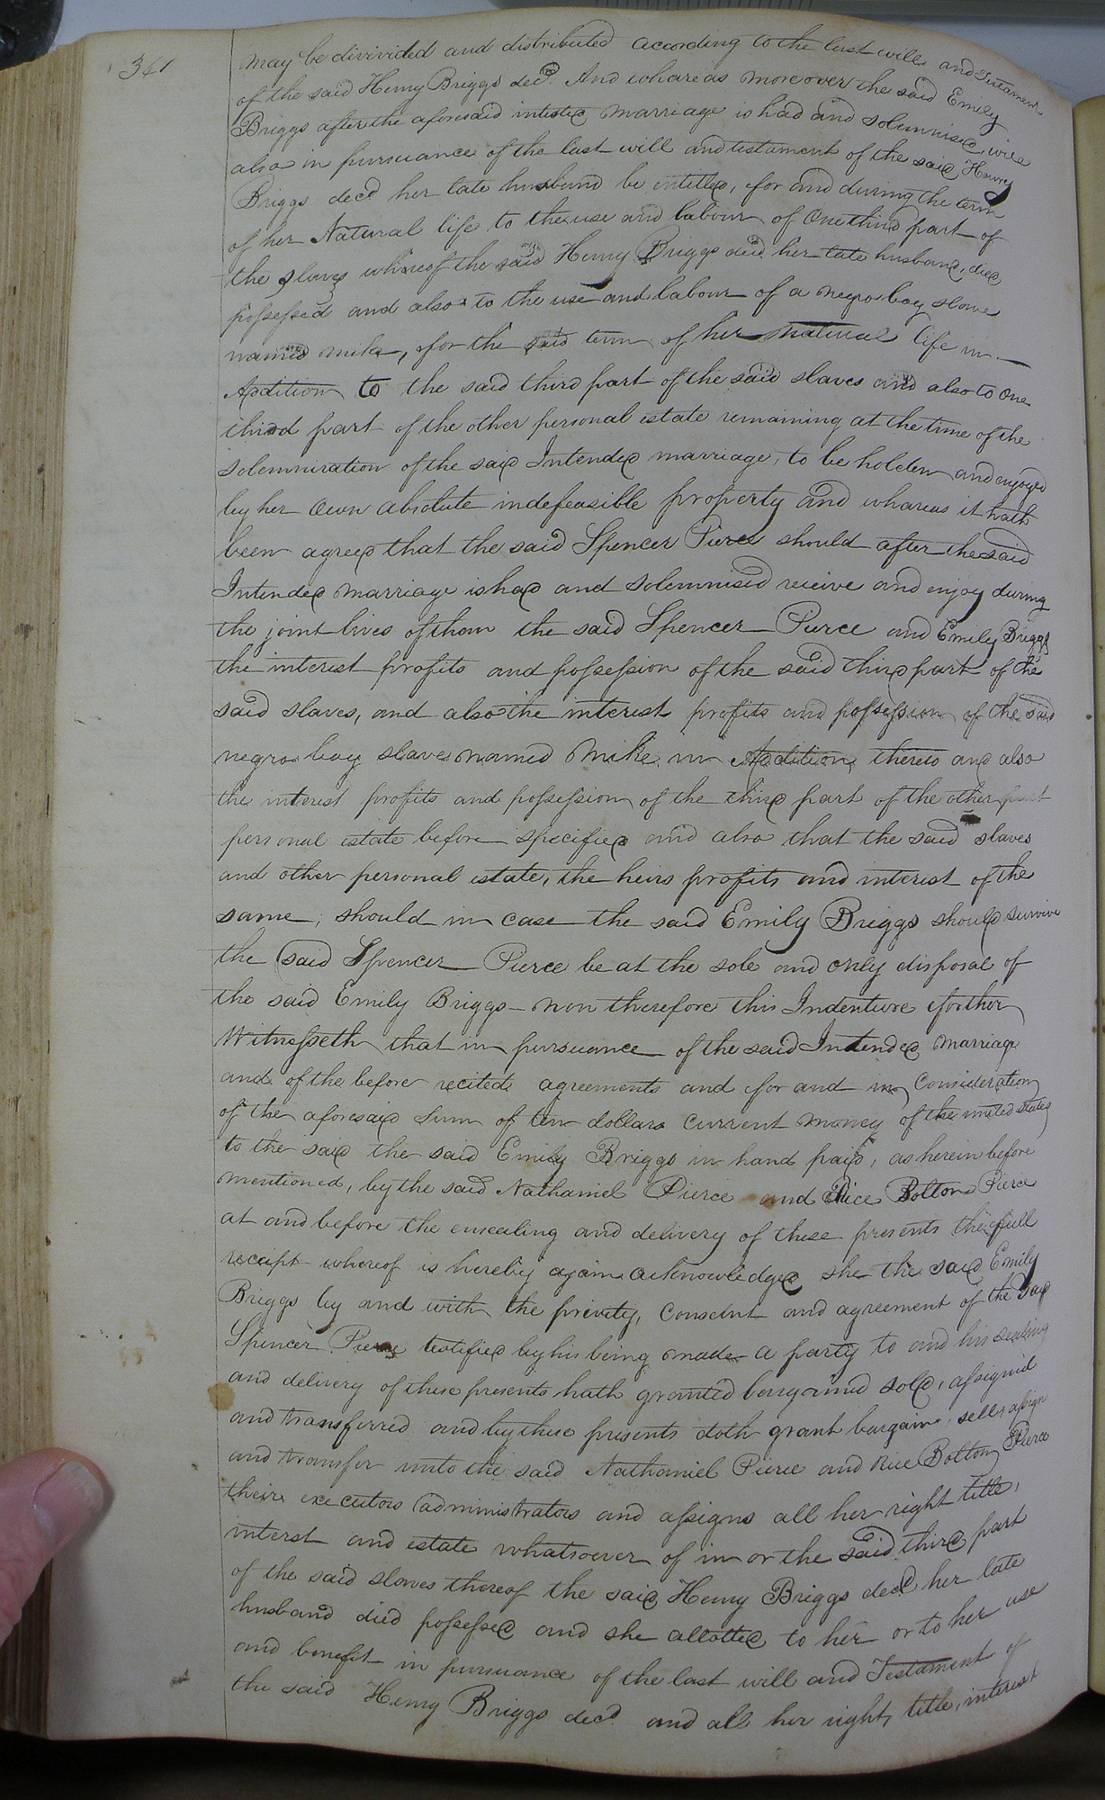 341
may be divivided and distributed according to the last will and Testament
of the said Henry Briggs decd And whareas moreover the said Emily
Briggs after the aforesaid intended marriage is had and solemnised, will
also in pursuance of the last will and testament of the said Henry
Briggs decd her late husband be entitled, for and during the term
of her Natural life to the use and labour of One third part of
the slaves whereof the said Henry Briggs decd her late husband, died
possessed and also to the use and labour of a negro boy slave
named mike, for the said term of her natural life in
Addition to the said third part of the said slaves and also to one
third part of the other personal estate remaining at the time of the
solemniration of the said Intended marriage, to be holden and enjoyed
by her own absolute indefeasible property and whareas it hath
been agreed that the said Spencer Pierce should after the said
Intended marriage is had and solemnised receive and enjoy during
the joint lives of them the said Spencer Pierce and Emily Briggs
the interest profits and possession of the said third part of the
said slaves, and also the interest profits and possession of the said
negro boy slave named Mike in Addition thereto and also
the interest profits and possession of the third part of the other part
personal estate before specified and also that the said slaves
and other personal estate, the heirs profits and interest of the
same, should in case the said Emily Briggs should survive
the said Spencer Pierce be at the sole and only disposal of
the said Emily Briggs - now therefore this Indenture forther
Witnesseth that in pursuance of the said Intended marriage
and of the before recited agreements and for and in Consideration
of the aforesaid sum of ten dollars current money of the united states
to the said the said Emily Briggs in hand paid, as herein before
mentioned, by the said Nathaniel Pierce and Rice Bolton Pierce
at and before the ensealing and delivery of these presents the full
receipt whereof is hereby again acknowledged she the said Emily
Briggs by and with the privity, consent and agreement of the said
Spencer Pierce testified by his being made a party to and his sealing
and delivery of these presents hath granted bargained sold, assigned
and transferred and by these presents doth grant bargain, sell, assign
and transfer unto the said Nathaniel Pierce and Rice Bolton Pierce
their executors administrators and assigns all her right title,
interst and estate whatsoever of in or the said third part
of the said slaves thereof the said Henry Briggs decd her late
husband died possessed and she allotted to her or to her use
and benefit in pursuance of the last will and Testament of
the said Henry Briggs decd and all her right, title, interest